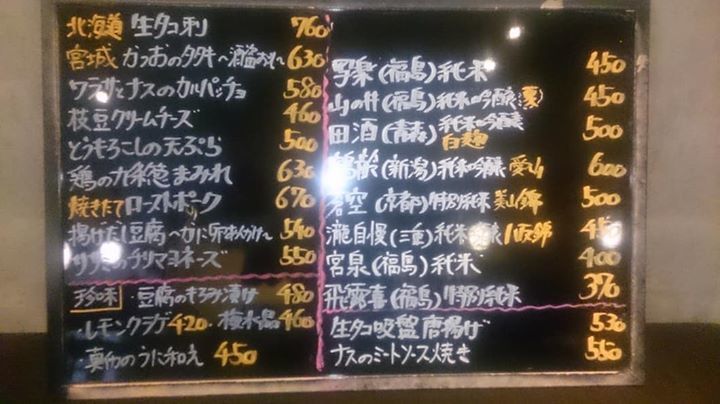 北海道 生タコ刺 760
宮城 かつおのタタキ〜酒盗おろし〜 630
ワラサとナスのカルパッチョ 580
枝豆クリームチーズ 460
とうもろこしの天ぷら 500
鶏の九条葱まみれ 630
焼きたてローストポーク 670
揚げだし豆腐〜かに卵あんかけ〜 540
ササミのチリマヨネーズ 550
珍味 ・豆腐のもろみ漬け 480
・レモンクラゲ 420 ・梅水晶 460
・真イカのうに和え 450
写楽(福島)純米 450
山の井(福島)純米吟醸(夏) 450
田酒(青森)純米吟醸 白麹 500
鶴齢(新潟)純米吟醸 愛山 600
蒼空(京都)特別純米 美山錦 500
瀧自慢(三重)純米吟醸 八反錦 450
宮泉(福島)純米 400
飛露喜(福島)特別純米 390
生タコ吸盤唐揚げ 530
ナスのミートソース焼き 550